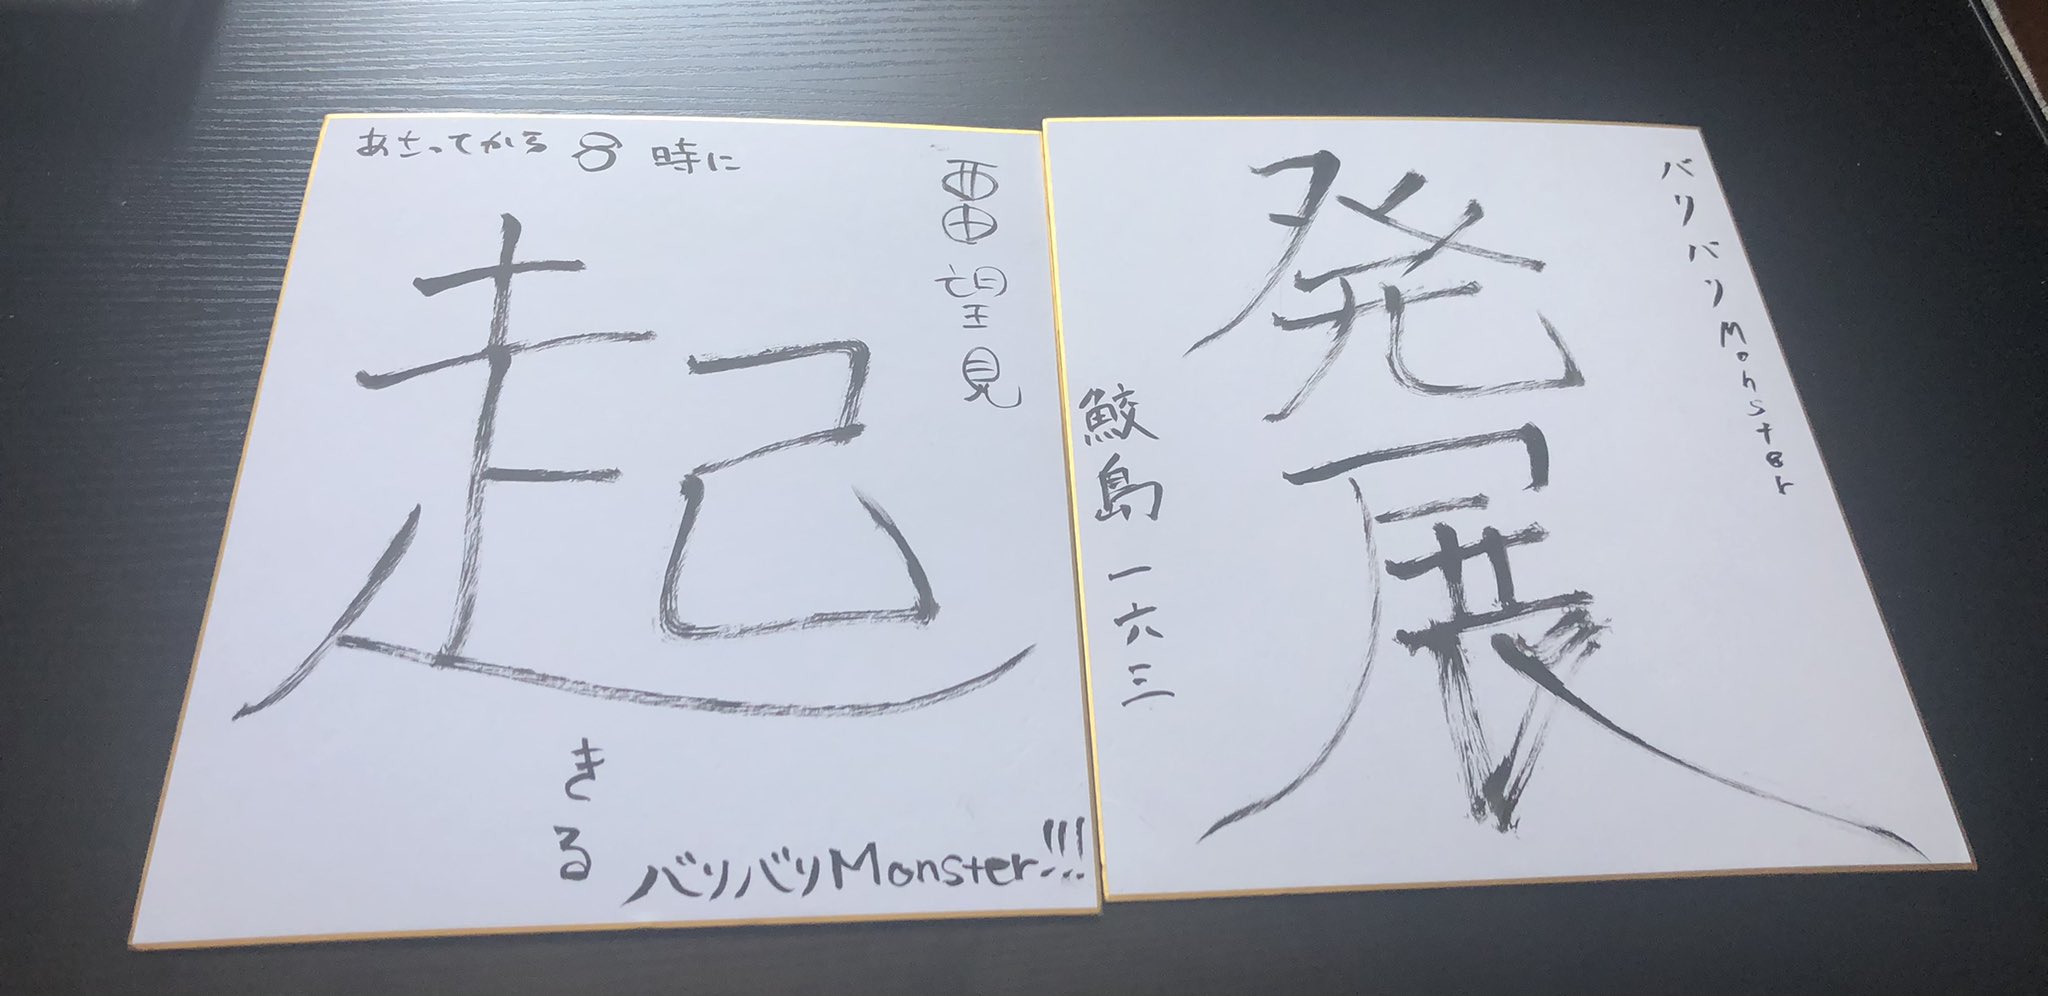 あさってから8時に
起
きる
西田望見
バリバリMonster!!!
バリバリMonster
発展
鮫島一六三